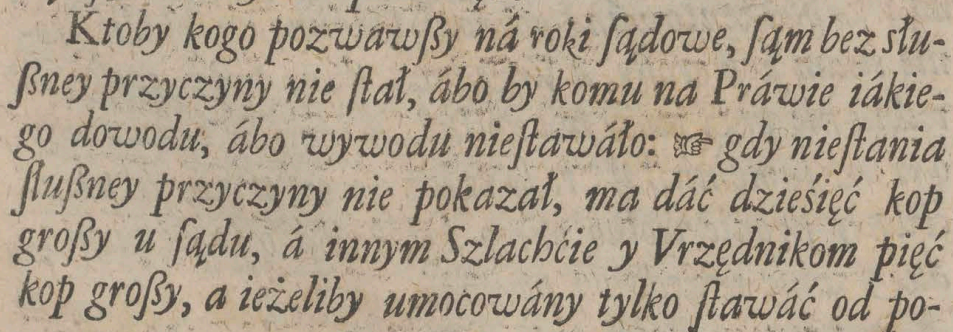 Ktoby kogo pozwawſzy ná roki ſądowe, ſąm bez słu-
ſzney przyczyny nie ſtał, ábo by komu na Práwie iákie-
go dowodu, ábo wywodu nieſtawáło: ☞ gdy nieſtania
ſłuſzney przyczyny nie pokazał, ma dáć dzieśięć kop
groſzy u ſądu, á innym Szlachćie y Vrzędnikom pięć
kop groſzy, a ieżeliby umocowány tylko ſtawáć od po-